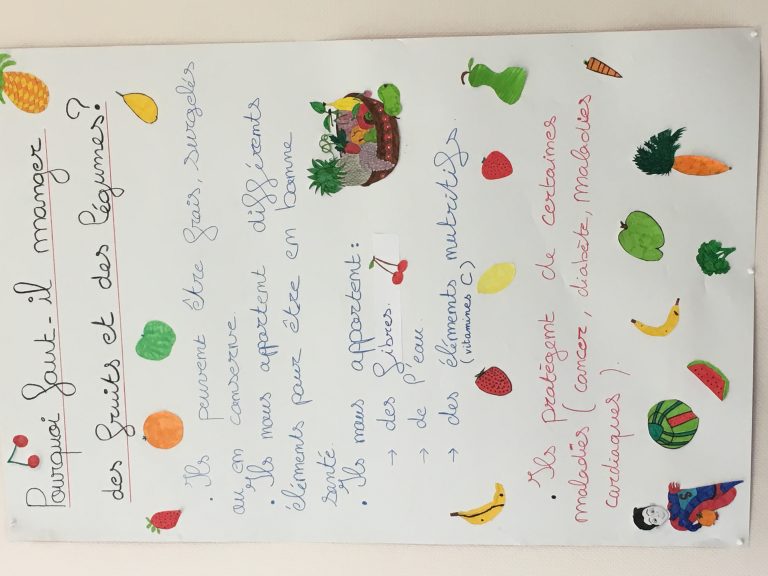 Pourquoi faut-il manger
des fruits et des légumes?
• Ils peuvent être frais, surgelés
ou en conserve.
• Ils nous apportent différents
éléments pour être en bonne
santé.
• Ils nous apportent :
→ des fibres.
→ de l'eau.
→ des éléments nutritifs.
(vitamines C)
• Ils protègent de certaines
maladies (cancer, diabète, maladies
cardiaques).